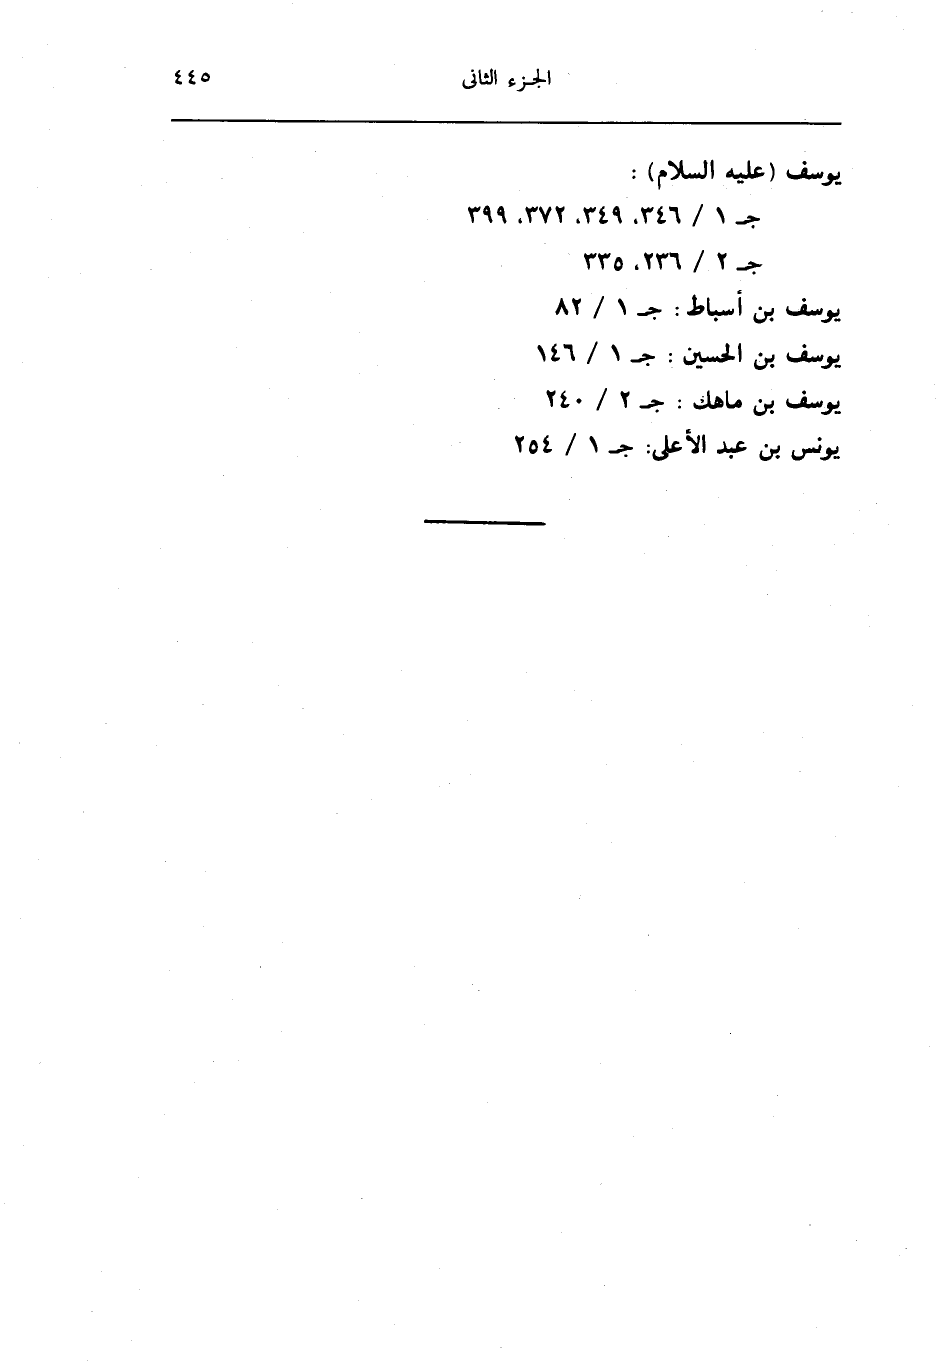 الجزء الثانى ٤٤٥
يوسف (عليه السلام) :
جـ ١ / ٣٤٦، ٣٤٩، ٣٧٢، ٣٩٩
جـ ٢ / ٢٣٦، ٣٣٥
يوسف بن أسباط : جـ ١ / ٨٢
يوسف بن الحسين : جـ ١ / ١٤٦
يوسف بن ماهك : جـ ٢ / ٢٤٠
يونس بن عبد الأعلى: جـ ١ / ٢٥٤